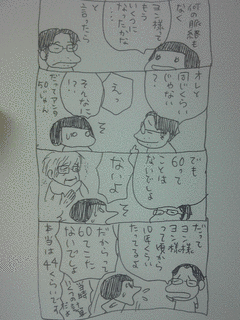 何の脈絡も
なく
ヨン様って
もう
いくつに
なったかな
と
言ったら
オレと
同じくらい
じゃない
?
えっ
そんなに
!?
だってアンタ
50じゃん
でも
60って
ことは
ないでしょ
ないよ
だって
ヨン様
ヨン様
って頃から
10年くらい
たってるよ
だからって
60てこた
ないでしょ
本当は44
くらいです